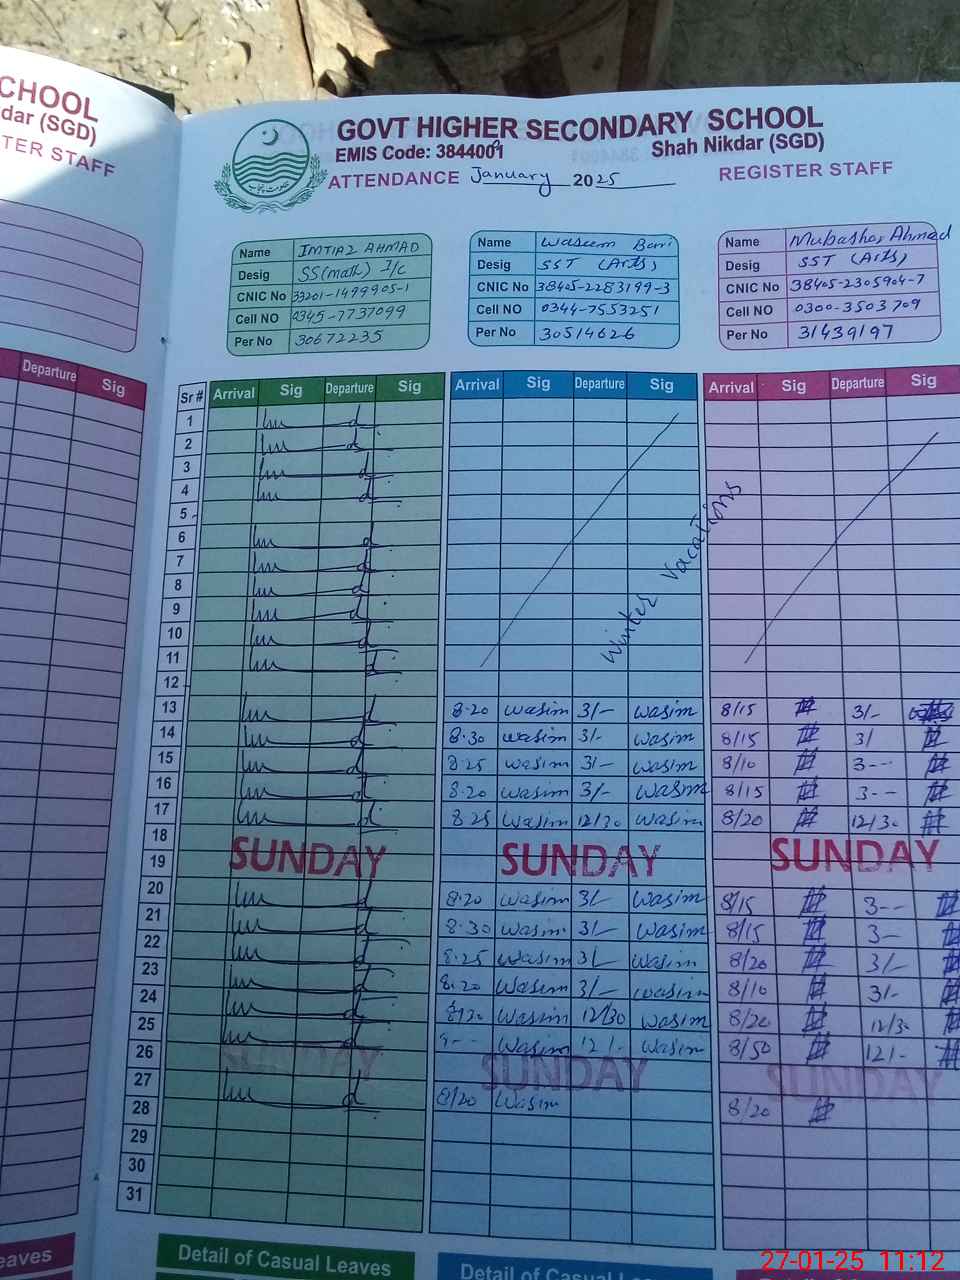 CHOOL
dar (SGD)
TER STAFF
Departure Sig
eaves
GOVT HIGHER SECONDARY SCHOOL
EMIS Code: 3844001 Shah Nikdar (SGD)
ATTENDANCE January 2025 REGISTER STAFF
حکومت پنجاب
Name IMTIAZ AHMAD
Desig SS(math) I/c
CNIC No 33201-1499905-1
Cell NO 0345-7737099
Per No 30672235
Name Waseem Barri
Desig SST (Arts)
CNIC No 38405-2283199-3
Cell NO 0344-7553251
Per No 30514626
Name Mubashar Ahmed
Desig SST (Arts)
CNIC No 38405-2305904-7
Cell NO 0300-3503709
Per No 31439197
Sr # Arrival Sig Departure Sig Arrival Sig Departure Sig Arrival Sig Departure Sig
1
2
3
4
5
6
7
8
9
10
11
12
Winter Vacations
13 8.20 wasim 3/- wasim 8/15 3/-
14 8.30 wasim 3/- wasim 8/15 3/
15 8.25 wasim 3/- wasim 8/10 3--
16 8.20 wasim 3/- wasim 8/15 3--
17 8.25 wasim 12/30 wasim 8/20 12/30
18
19 SUNDAY SUNDAY SUNDAY
20 8.20 wasim 3/- wasim 8/15 3--
21 8.30 wasim 3/- wasim 8/15 3--
22 8.25 wasim 3/- wasim 8/20 3/-
23 8.20 wasim 3/- wasim 8/10 3/-
24 8/30 wasim 12/30 wasim 8/20 12/30
25 wasim 12/- wasim 8/50 12/-
26 SUNDAY SUNDAY SUNDAY
27 8/20 wasim 8/20
28
29
30
31
Detail of Casual Leaves Detail of Casual Leaves
27-01-25 11:12